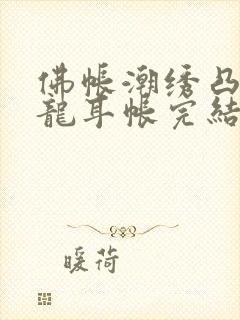 佛帳潮绣凸
龍耳帳完結
暖荷